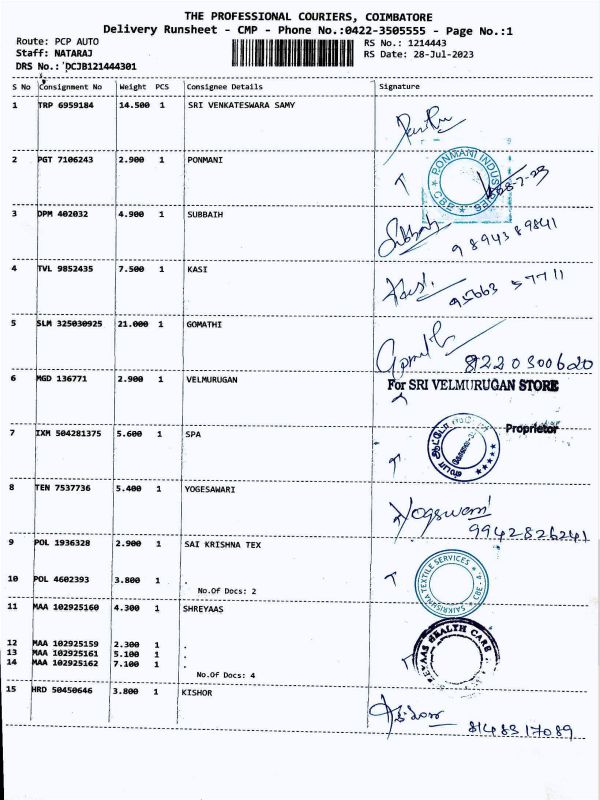 THE PROFESSIONAL COURIERS, COIMBATORE
Delivery Runsheet - CMP - Phone No.:0422-3505555 - Page No.:1
Route: PCP AUTO
RS No.: 1214443
Staff: NATARAJ
RS Date: 28-Jul-2023
DRS No.: DCJB121444301
S No Consignment No Weight PCS Consignee Details Signature
1 TRP 6959184 14.500 1 SRI VENKATESWARA SAMY
2 PGT 7106243 2.900 1 PONMANI
PONMANI INDUSTRIES
CBE
3 DPM 402032 4.900 1 SUBBAIH
Subbaih
9894389841
4 TVL 9852435 7.500 1 KASI
Kasi.
95663 57711
5 SLM 325030925 21.000 1 GOMATHI
8220300620
6 MGD 136771 2.900 1 VELMURUGAN
For SRI VELMURUGAN STORE
Proprietor
7 IXM 504281375 5.600 1 SPA
8 TEN 7537736 5.400 1 YOGESAWARI
Yogswari
9942826241
9 POL 1936328 2.900 1 SAI KRISHNA TEX
SAIKRISHNA TEXTILE SERVICES
10 POL 4602393 3.800 1 .
No.Of Docs: 2
11 MAA 102925160 4.300 1 SHREYAAS
HEALTH CARE
12 MAA 102925159 2.300 1 .
13 MAA 102925161 5.100 1 .
14 MAA 102925162 7.100 1 .
No.Of Docs: 4
15 HRD 50450646 3.800 1 KISHOR
8148317089